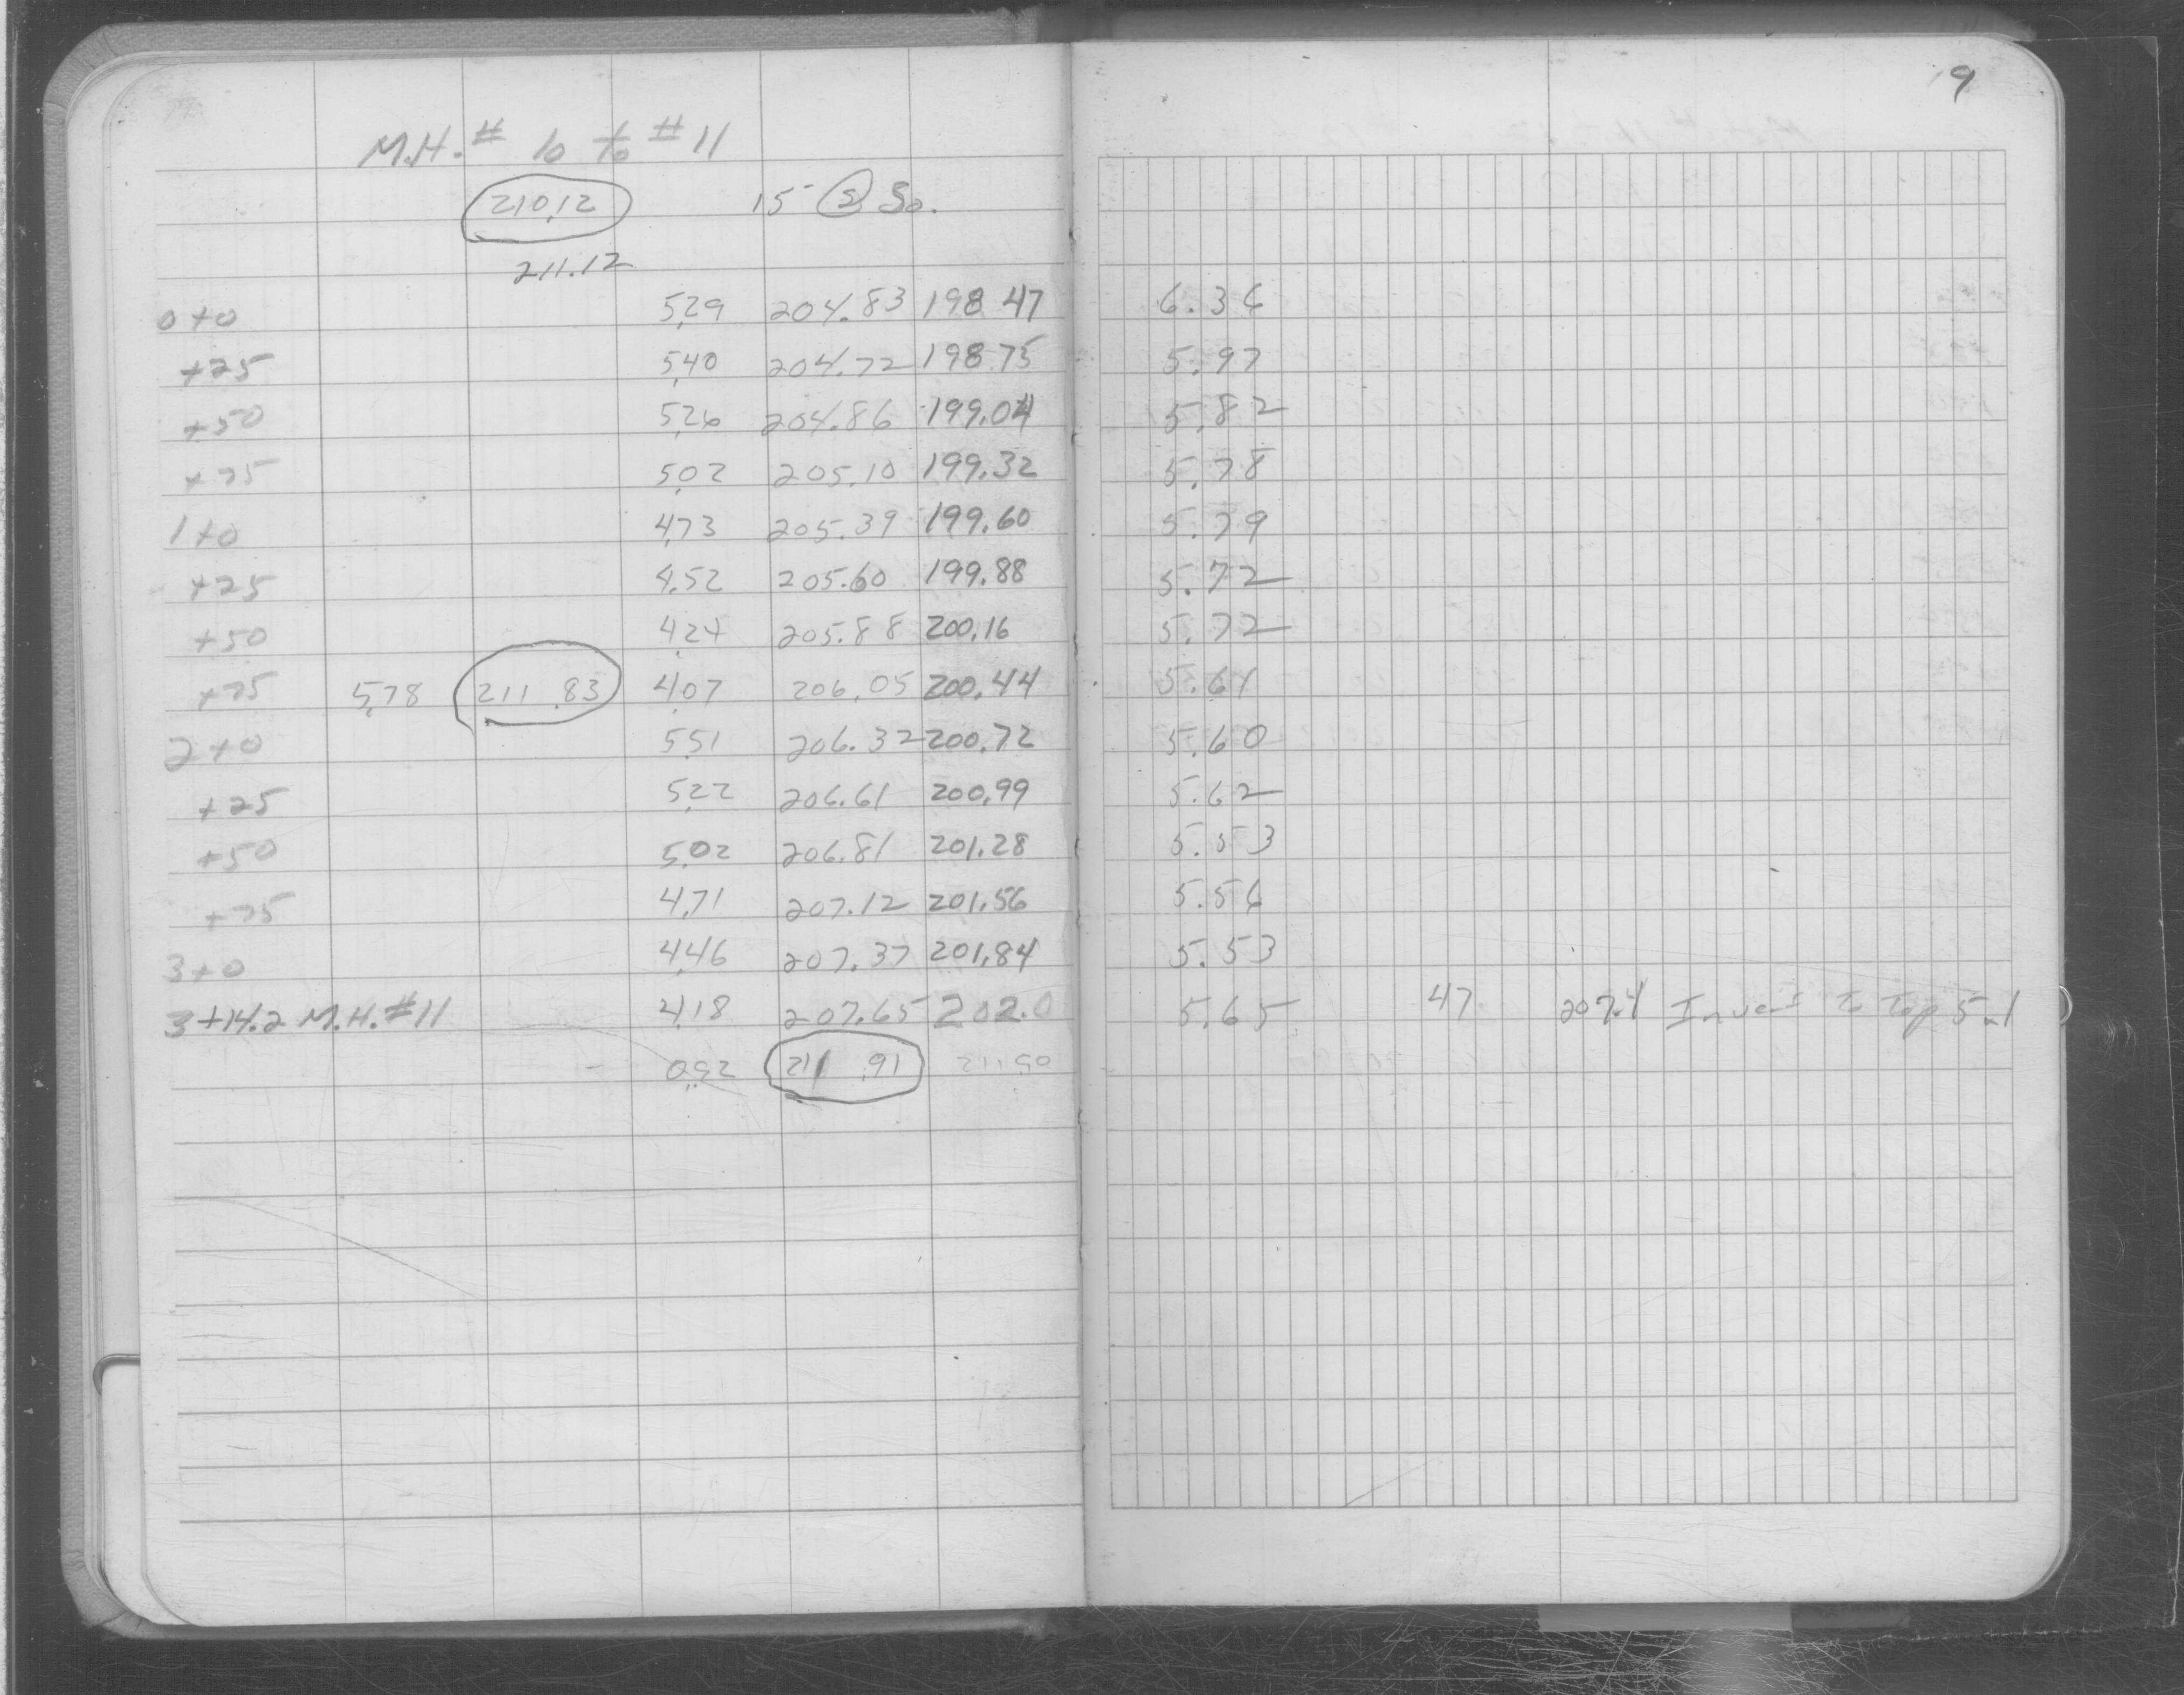 9
M.H. # 10 to # 11
210.12 15" So.
211.12
0+0 5.29 204.83 198.47 6.36
+25 5.40 204.72 198.75 5.97
+50 5.26 204.86 199.04 5.82
+75 5.02 205.10 199.32 5.78
1+0 4.73 205.39 199.60 5.79
+25 4.52 205.60 199.88 5.72
+50 4.24 205.88 200.16 5.72
+75 5.78 211.83 4.07 206.05 200.44 5.61
2+0 5.51 206.32 200.72 5.60
+25 5.22 206.61 200.99 5.62
+50 5.02 206.81 201.28 5.53
+75 4.71 207.12 201.56 5.56
3+0 4.46 207.37 201.84 5.53
3+14.2 M.H. #11 4.18 207.65 202.0 5.65 47 207.1 Invert to top 5.1
211.91 211.90